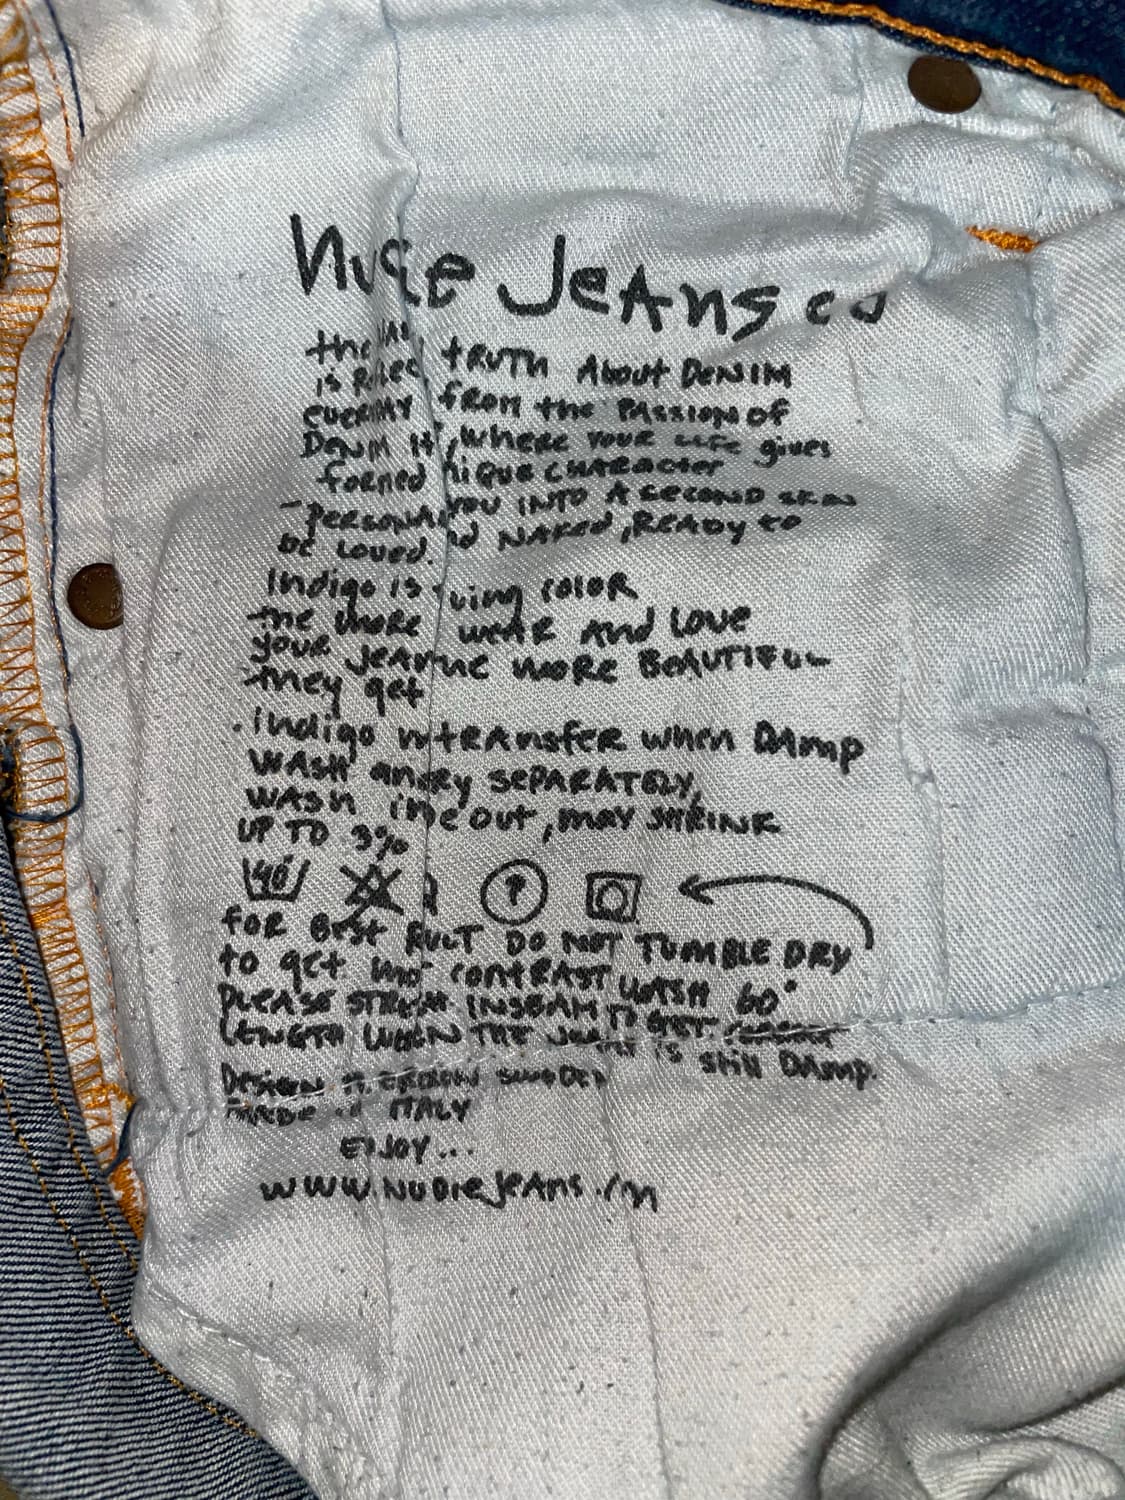 Nudie Jeans co
the truth About DENIM
is from the PASSION OF
DENIM it, where YOUR LIFE gives
formed CHARACTER
- YOU INTO A SECOND SKIN
be loved. NAKED, READY to
Indigo is color
the more wear AND LOVE
your more BEAUTIFUL
they get
. indigo transfer when DAMP
WASH SEPARATELY,
WASH out, may SHRINK
UP TO 3%
40° P
for Best DO NOT TUMBLE DRY
to get CONTRAST WASH 60°
PLEASE INSEAM TO GET
LENGTH WHEN THE is still DAMP.
DESIGN SWEDEN
MADE ITALY
ENJOY...
www.NUDIEJEANS.